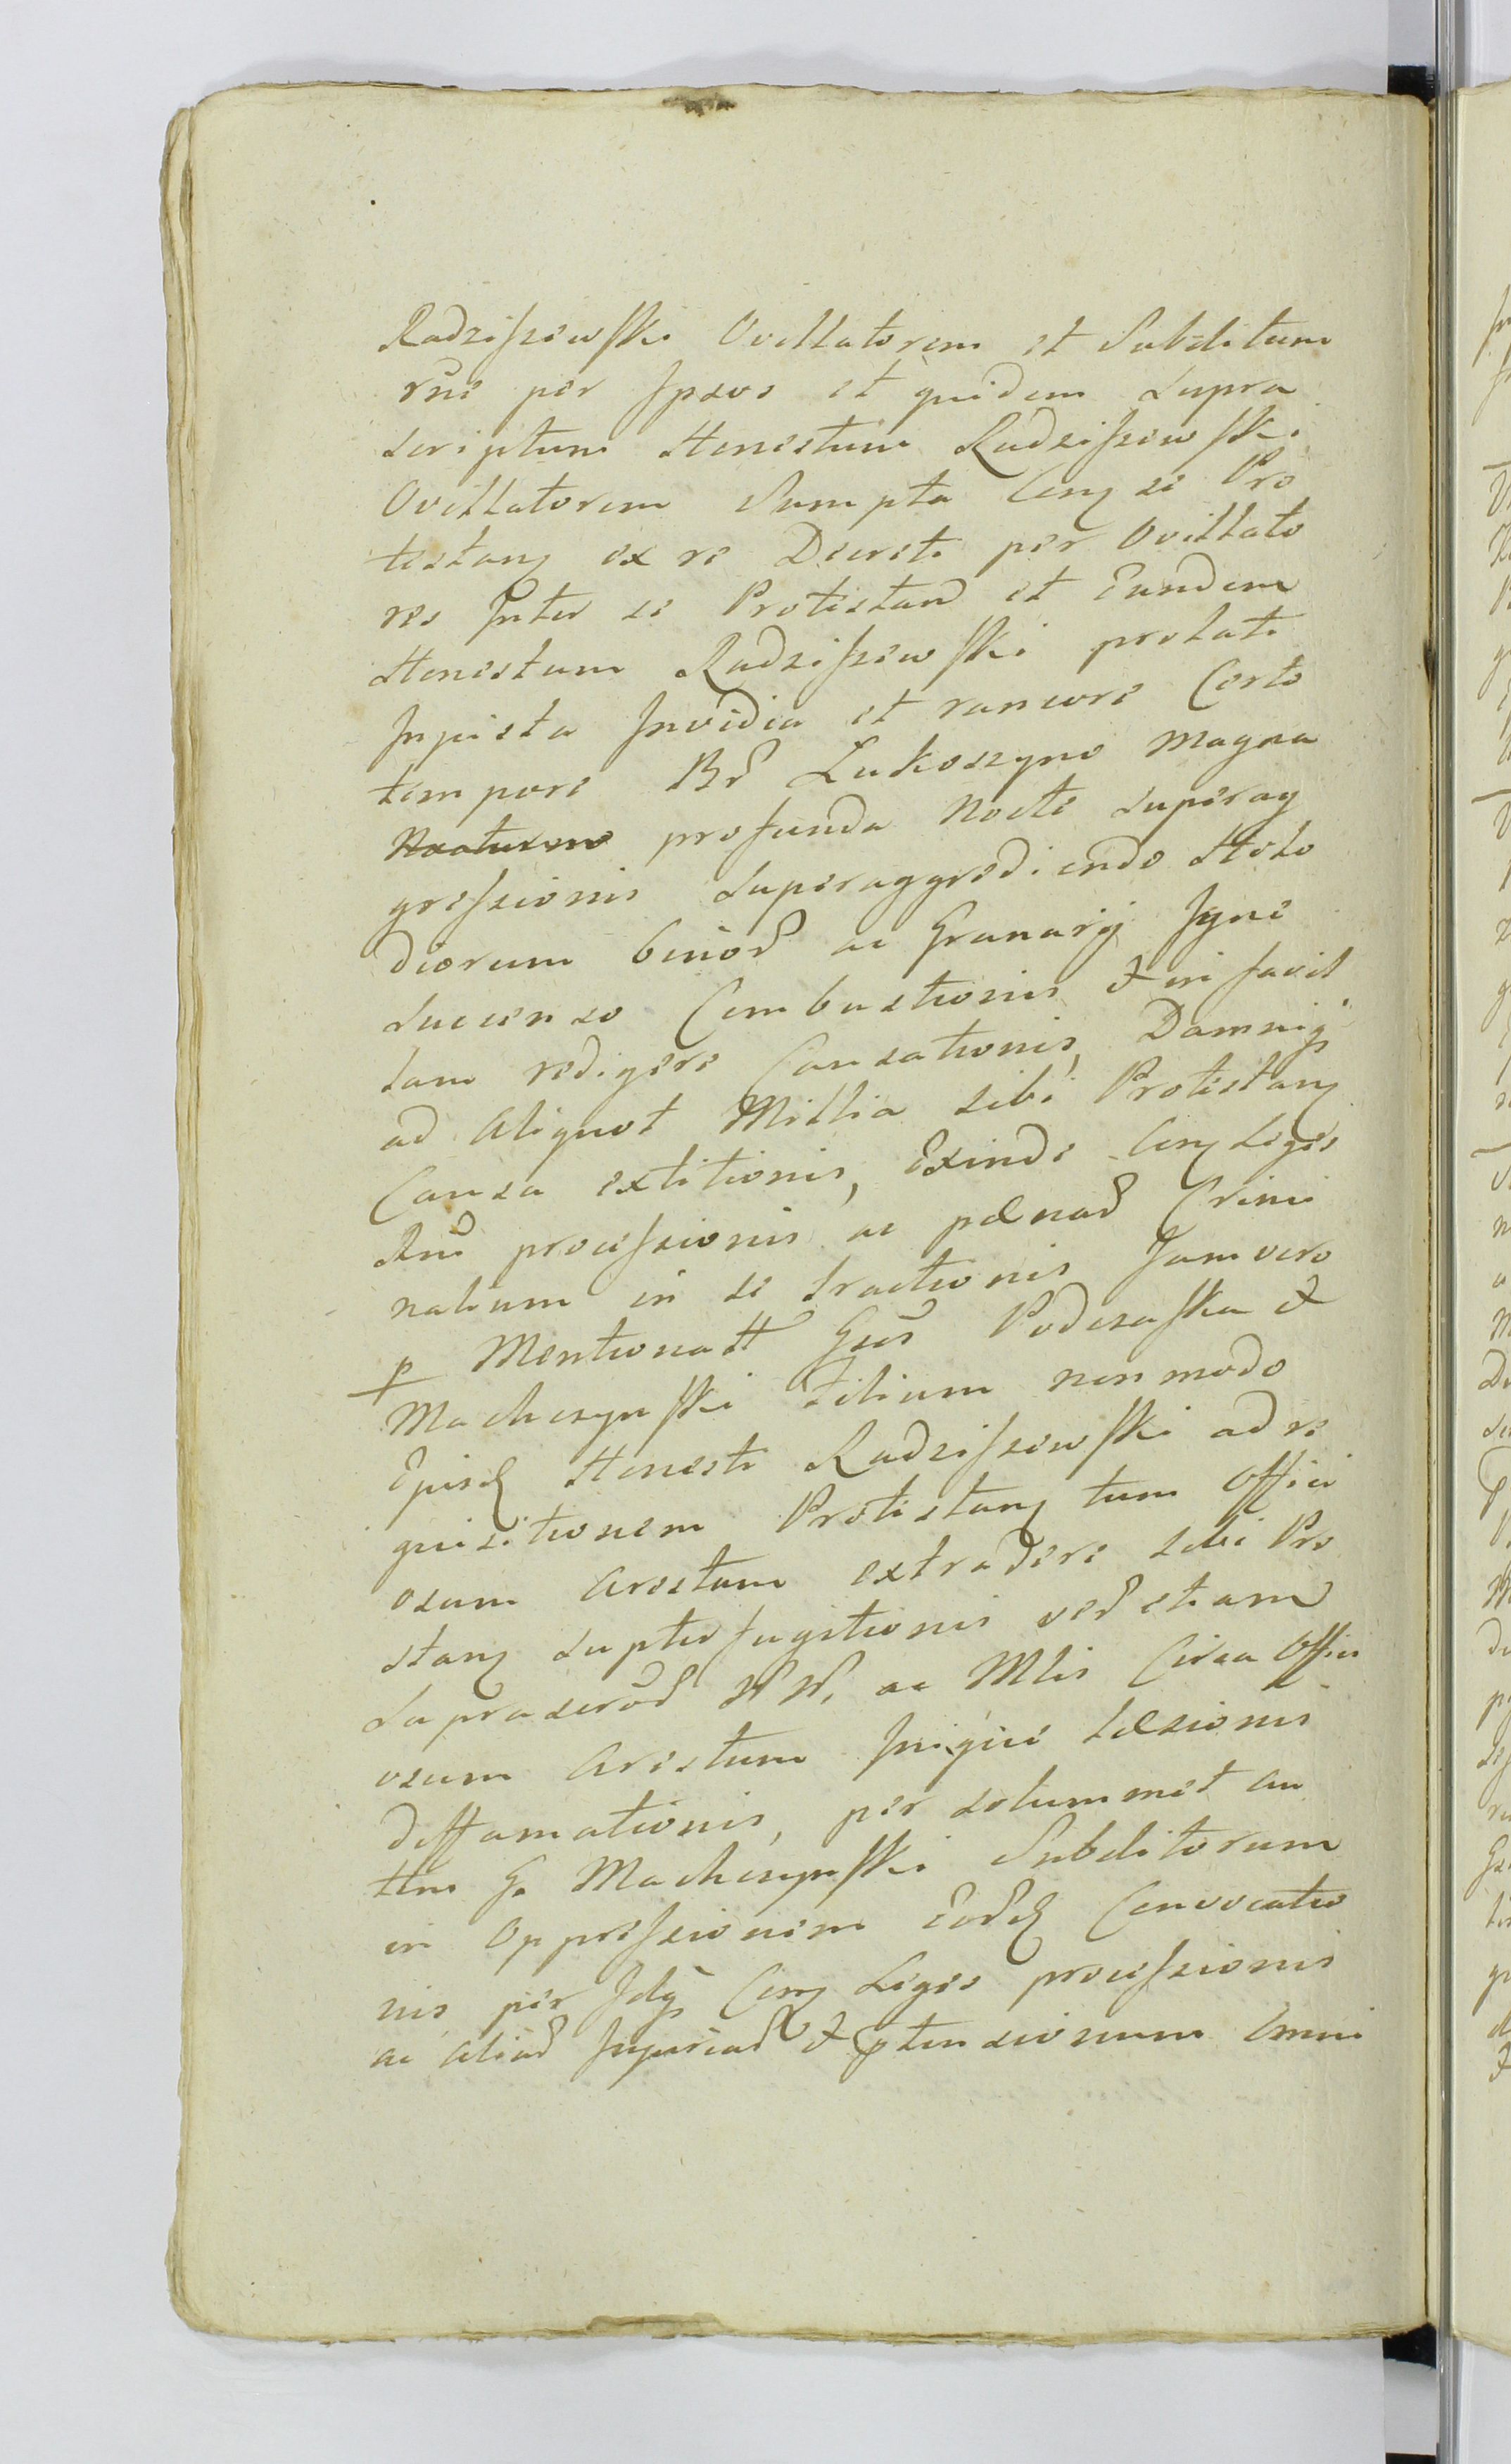 Radziszewski Ovillatorem et Subditum
rne per Ipsos et quidem supra
scriptum Honestum Radziszewski
Ovillatorem Sumpta Conz se Pro
testanz ex re Decreti per Ovillato
res Inter se Protestand et Eundem
Honestum Radziszewski prolati
Injusta Invidia et rancore Certo
tempore Bd Lukoszyno magna
profunda Nocte superag
gressionis superaggrediendo Stoto
diorum Bonod ac Granarij Igne
succenso Combustionis & in favil
lam redigere Causationis, Damnig
ad Aliquot Millia sibi Protestanz
Causa extitionis, Exinde Conz Leges
Rni processionis ac pænad Crimi
nalium in se tractionis Jam vero
p Mentionatt Gsos Podczaska &
Machczynski Filium non modo
Ejusd Honesti Radziszewski ad re
quisitionem Protestanz tum offici
osum Arestum extradere sibi Pro
stanz supterfugitionis ved etiam
suprascrod NN, ac Mlis Circa Offici
osum Arestum Inique læsionis
diffamationis, per solummet an
ttm G. Machczynski Subditorum
in Oppressionem Eord Convocatio
nis per Idq Conz Leges processionis
ac aliad Injuriad & ptensionum Omni